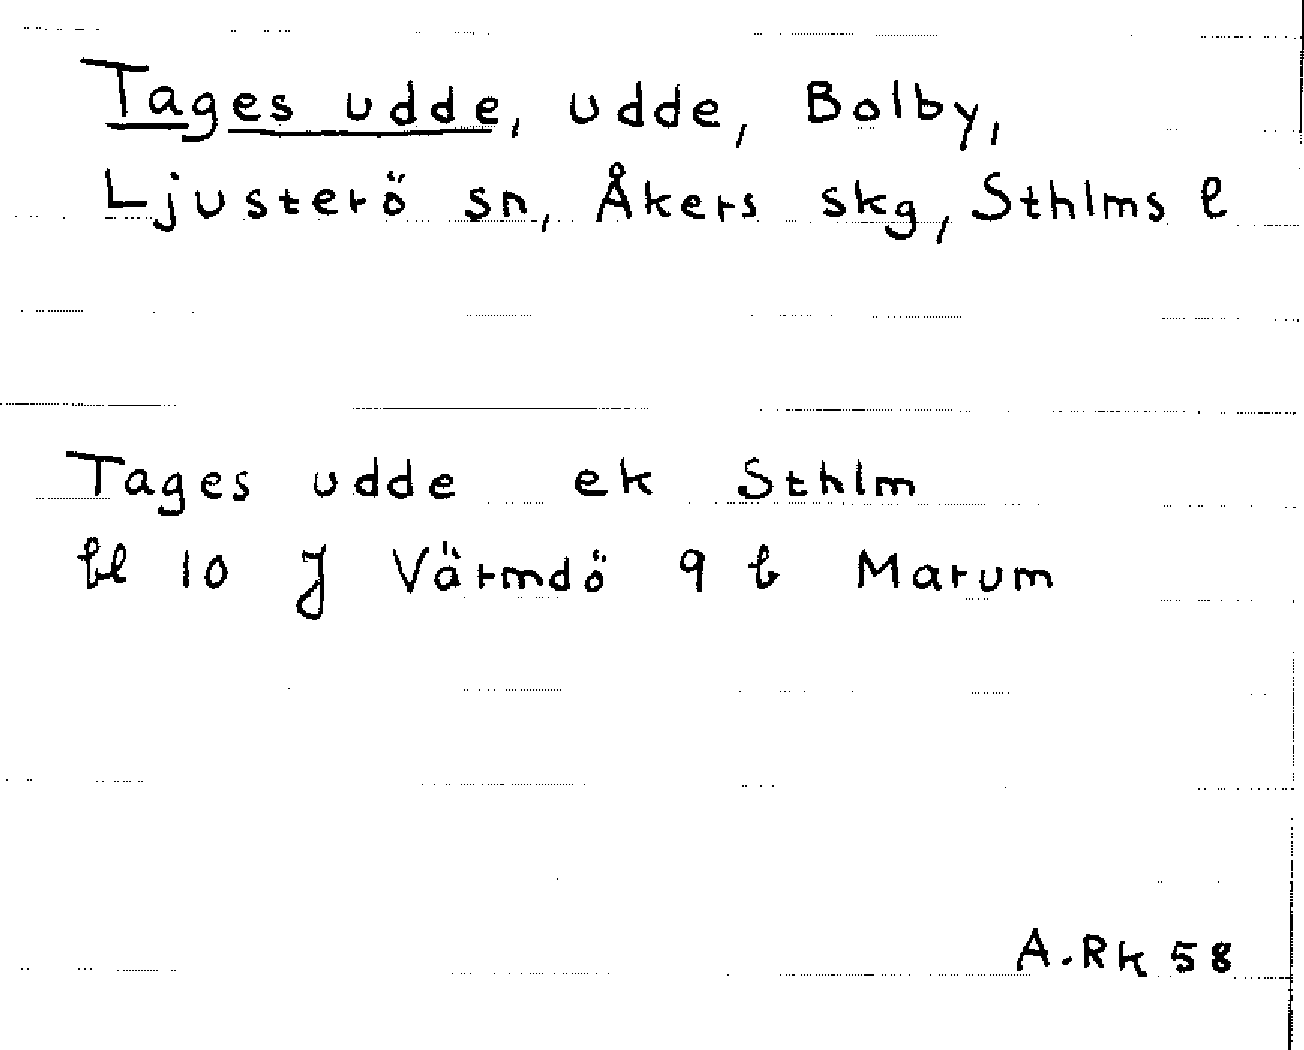 Tages udde, udde, Bolby,
Ljusterö sn, Åkers skg, Sthlms l
Tages udde ek Sthlm
bl 10 J Värmdö 9 b Marum
A.Rk 58